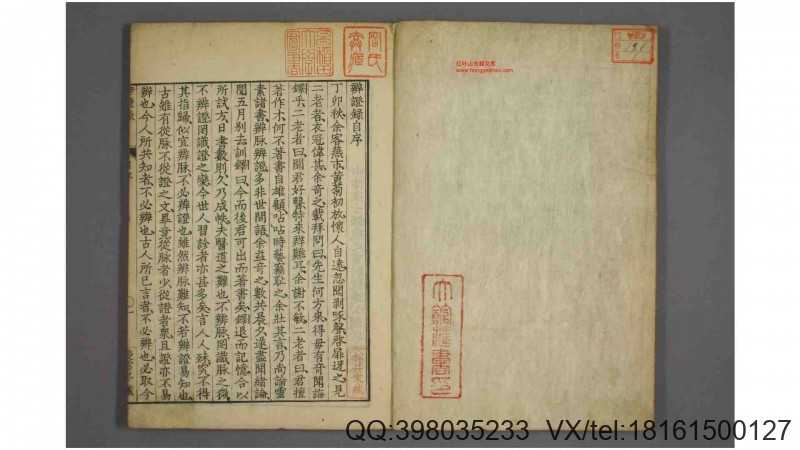 辨證錄自序
丁卯秋余客燕市黃菊初放懷人自遠忽聞剥啄聲啓扉迓之見
二老者衣冠偉甚余奇之載拜問曰先生何方來得毋有奇聞誨
鐸乎二老者曰聞君好醫特來辨難耳余謝不敏二老者曰君擅
著作才何不著書自雄顧呫呫時藝竊耻之余壯其言乃尚論靈
素諸書辨脉辨證多非世間語余益奇之數共晨夕遂盡聞緒論
閱五月别去訓鐸曰今而後君可出而著書矣鐸退而記憶合以
所試方日書數則久乃成帙夫醫道之難也不辨脉罔識脉之微
不辨證罔識證之變今世人習診者亦甚多矣言人人殊究不得
其指歸似宜辨脉不必辨證也雖然辨脉難知不若辨證易知也
古雖有從脉不從證之文畢竟從脉者少從證者衆且證亦不易
辨也今人所共知者不必辨也古人所已言者不必辨也必取今
红叶山古籍文库
www.hongyeshan.com
QQ:398035233 VX/tel:18161500127